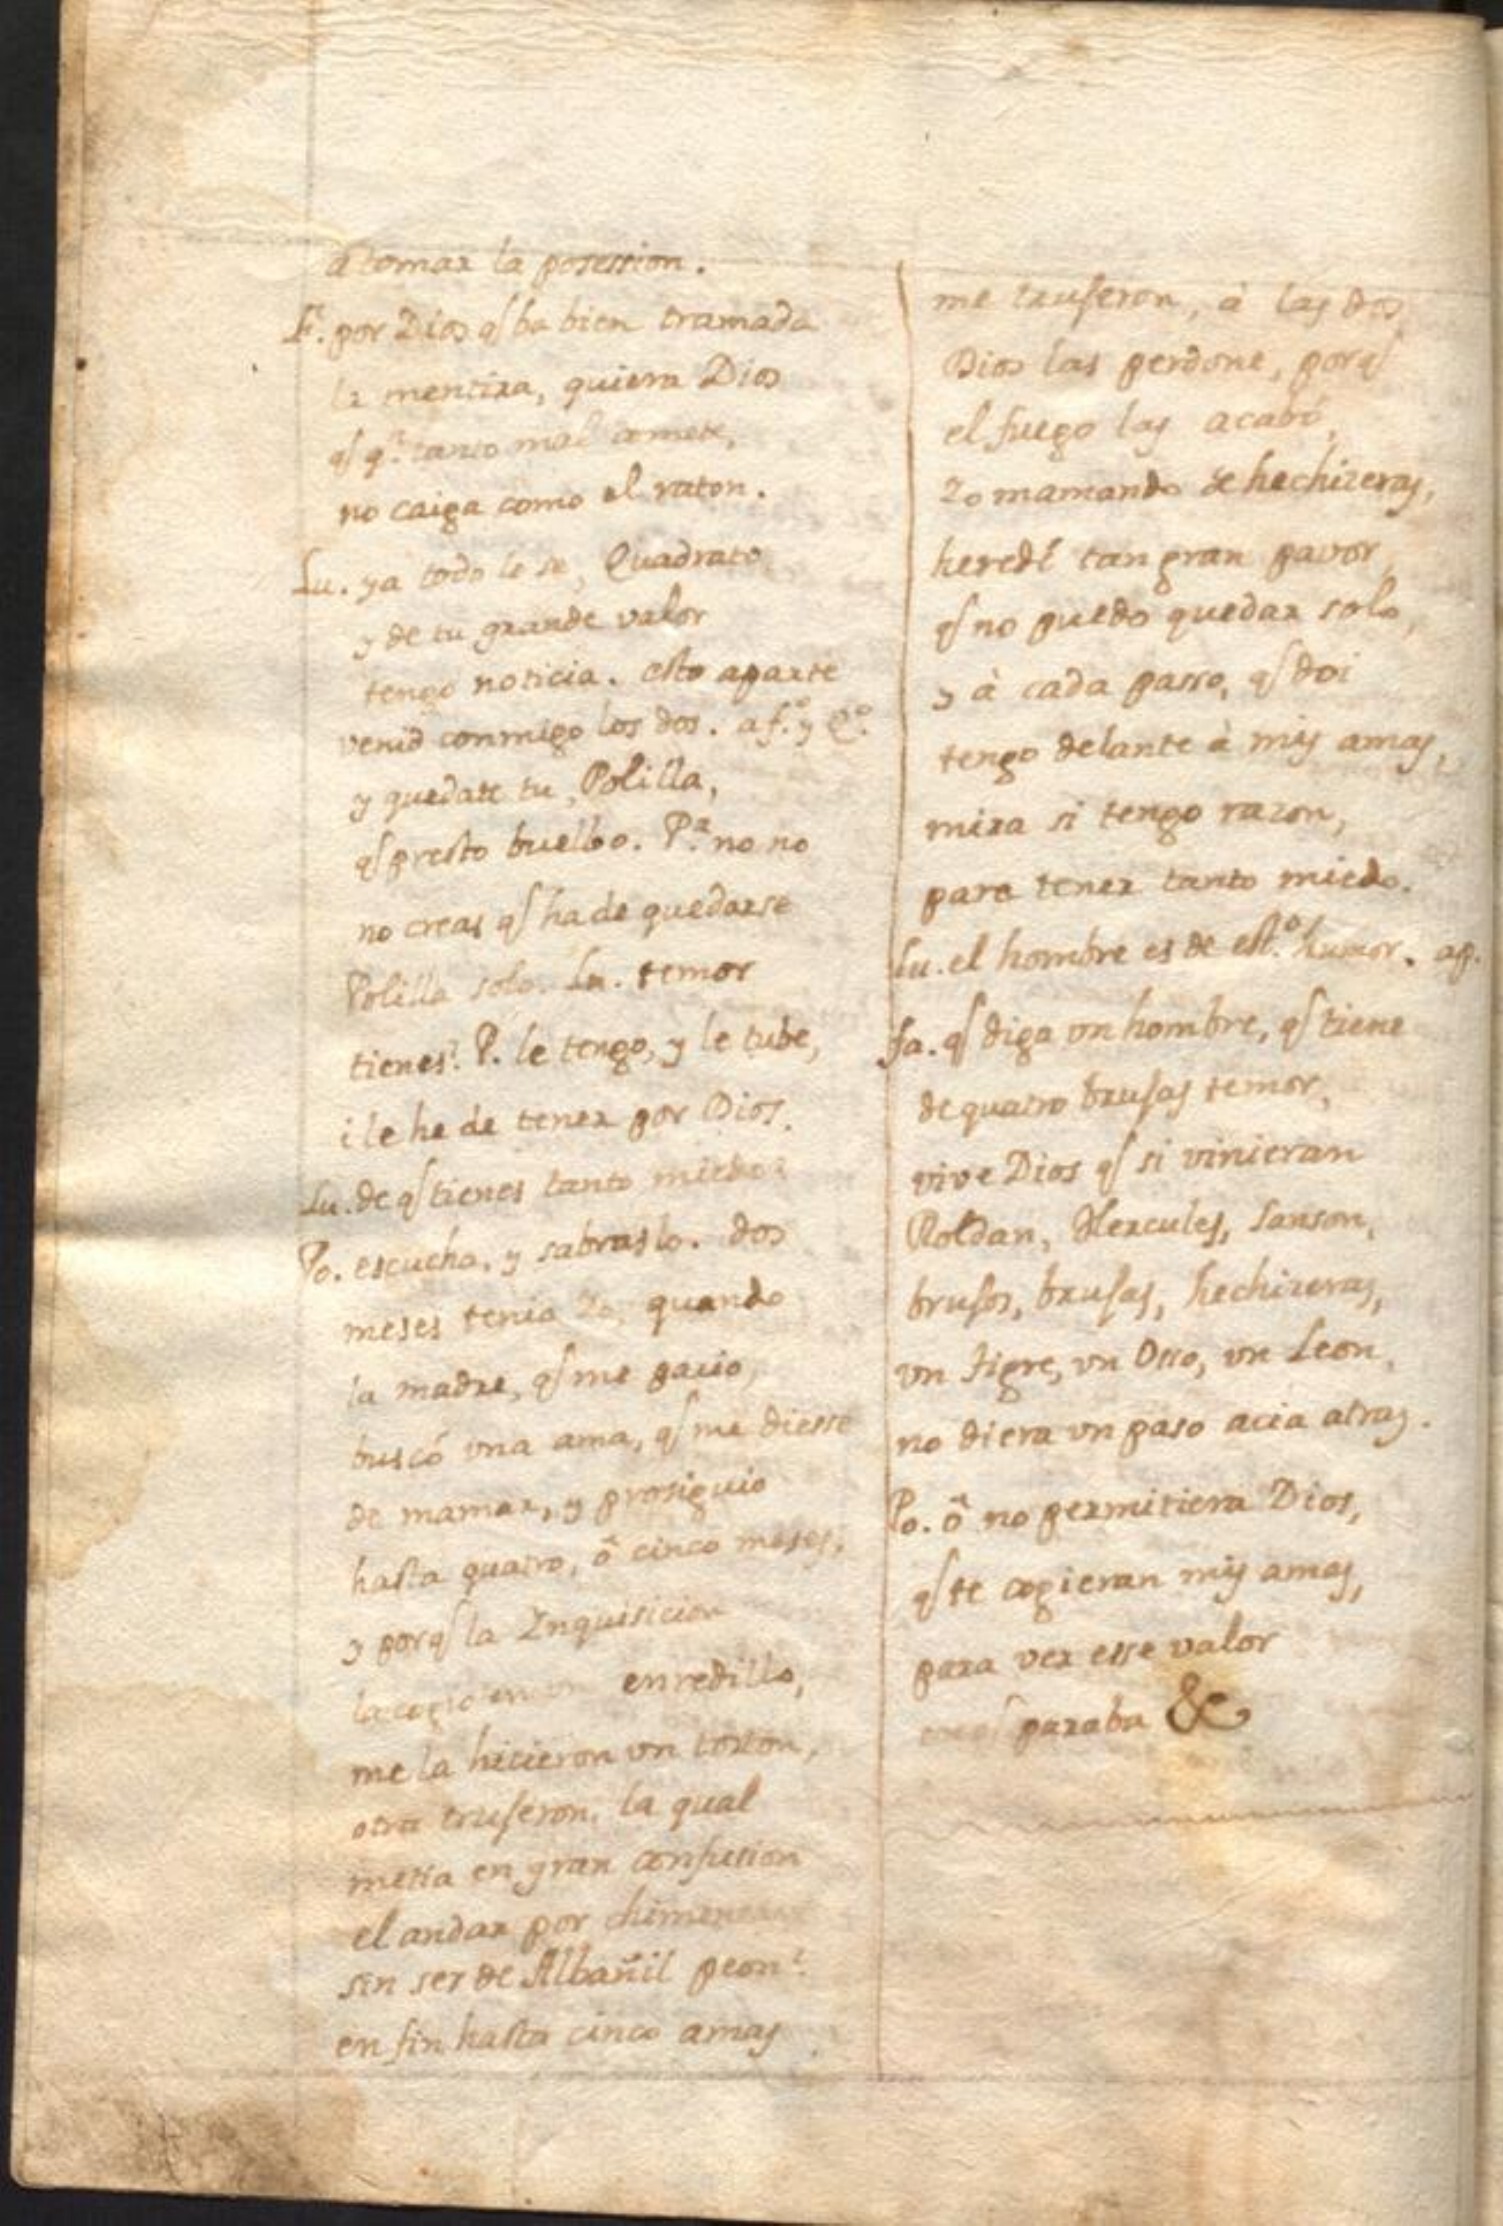 a tomar la posession.
F. por Dios q̃ ba bien tramada
la mentira, quiera Dios
q̃ qn. tanto mal comete,
no caiga como el raton.
Lu. ya todo le se, Quadrato
y de tu grande valor
tengo noticia. esto aparte
venid conmigo los dos. a f.º y Q.º
y quedate tu, Polilla,
q̃ presto buelbo. Pa. no no
no creas q̃ ha de quedarse
Polilla solo. Lu. temor
tienes? P. le tengo, y le tube,
i le he de tener por Dios.
Lu. de q̃ tienes tanto miedo?
Po. escucha, y sabraslo. dos
meses tenia Io, quando
la madre, q̃ me pario,
buscó una ama, q̃ me diesse
de mamar, y prosiguio
hasta quatro, ô cinco meses,
y porq̃ la Inquisicion
la cogio en un enredillo,
me la hicieron un torton,
otra truseron, la qual
metia en gran confusion
el andar por chimeneas
sin ser de Albañil peon?
en fin hasta cinco amas
me truseron, à las dos
Dios las perdone, porq̃
el fuego las acabó,
Io mamando de hechizeras,
heredé tan gran pavor,
q̃ no puedo quedar solo,
y à cada passo, q̃ doi
tengo delante à mis amas,
mira si tengo razon,
para tener tanto miedo.
Lu. el hombre es de est.º humor. ap.
fa. q̃ diga un hombre, q̃ tiene
de quatro brusas temor,
vive Dios q̃ si vinieran
Roldan, Hercules, Sanson,
brusos, brusas, hechizeras,
un tigre, un Osso, un Leon,
no diera un paso acia atras.
Po. ô no permitiera Dios,
q̃ te cogieran mis amas,
para ver esse valor
paraba &c